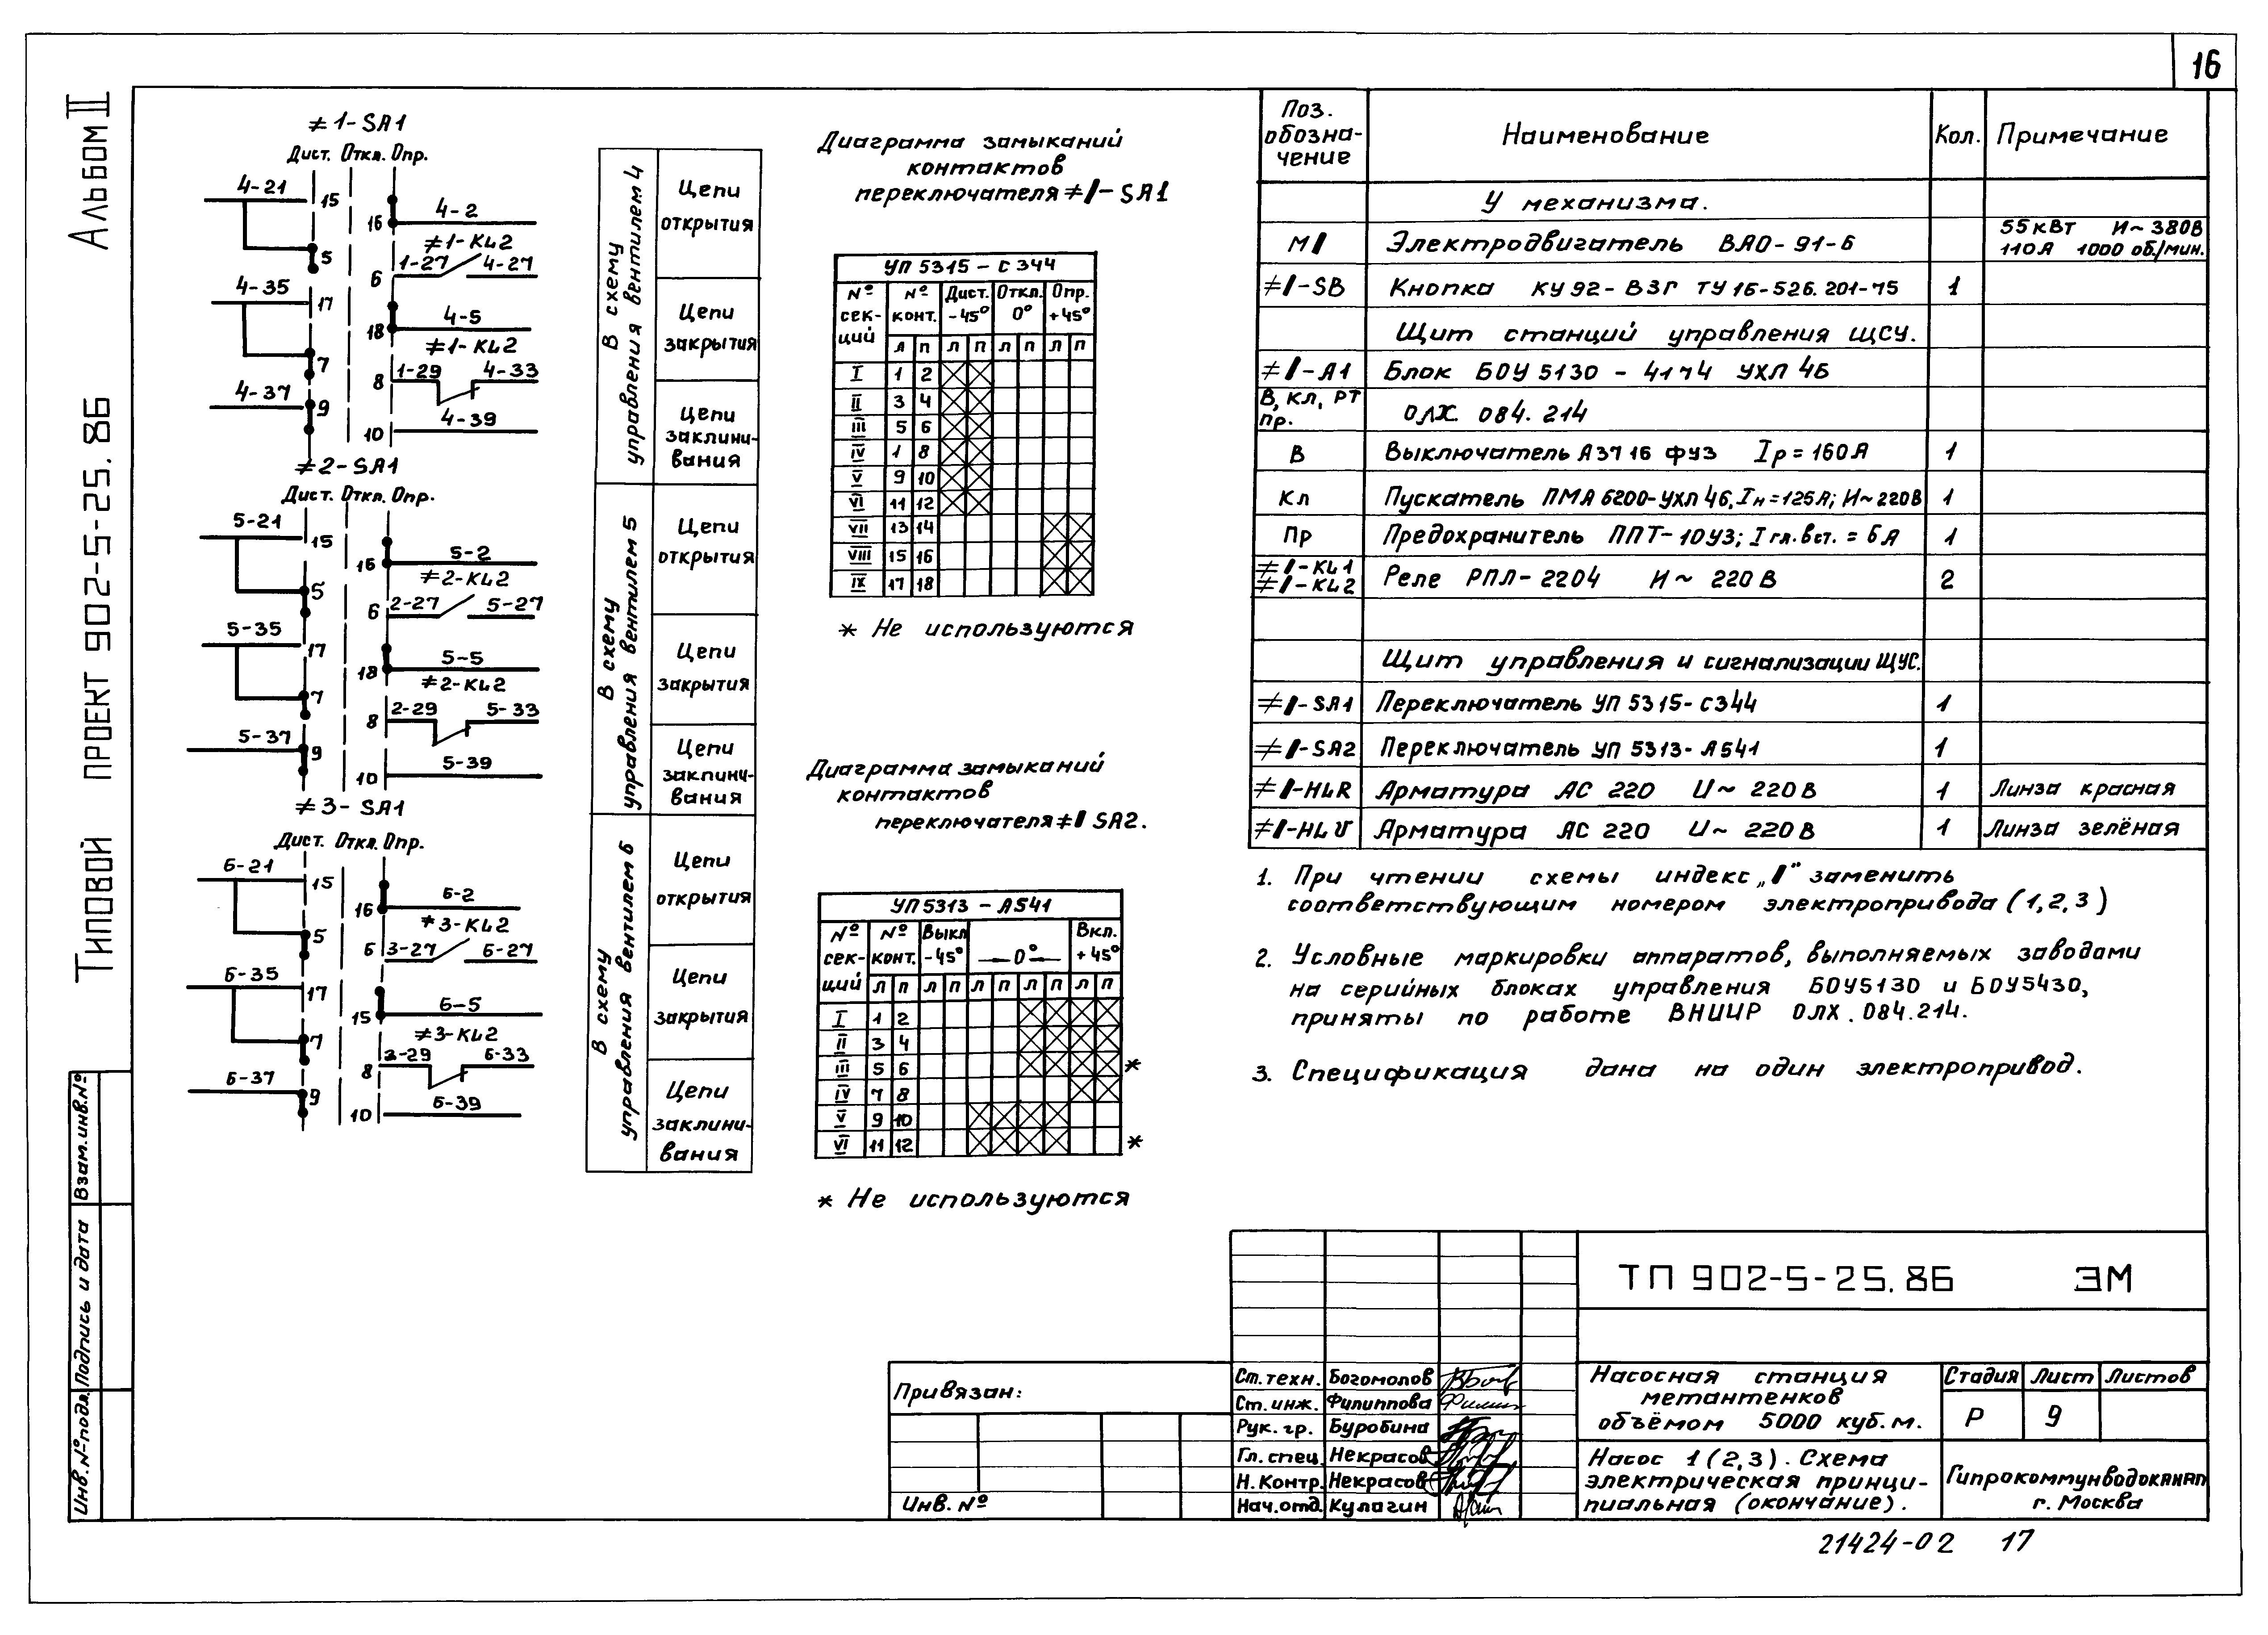 16
Альбом II
Типовой проект 902-5-25.86
≠1-SA1
Дист. Откл. Опр.
4-21
15
16
4-2
≠1-KL2
5
6
1-27
4-27
4-35
17
18
4-5
≠1-KL2
7
8
1-29
4-33
4-37
9
10
4-39
≠2-SA1
Дист. Откл. Опр.
5-21
15
16
5-2
≠2-KL2
5
6
2-27
5-27
5-35
17
18
5-5
≠2-KL2
7
8
2-29
5-33
5-37
9
10
5-39
≠3-SA1
Дист. Откл. Опр.
6-21
15
16
6-2
*3-KL2
5
6
3-27
6-27
6-35
17
15
6-5
≠3-KL2
7
8
3-29
6-33
6-37
9
10
6-39
В схему
управления вентилем 4
Цепи
открытия
Цепи
закрытия
Цепи
заклини-
вания
В схему
управления вентилем 5
Цепи
открытия
Цепи
закрытия
Цепи
заклини-
вания
В схему
управления вентилем 6
Цепи
открытия
Цепи
закрытия
Цепи
заклини-
вания
Диаграмма замыканий
контактов
переключателя ≠I-SA1
УП 5315-С344
№ сек-ций № конт. Дист. -45° Откл. 0° Опр. +45°
Л П Л П Л П Л П
I 1 2
II 3 4
III 5 6
IV 1 8
V 9 10
VI 11 12
VII 13 14
VIII 15 16
IX 17 18
* Не используются
Диаграмма замыканий
контактов
переключателя ≠I SA2.
УП 5313-А541
№ сек-ций № конт. Выкл -45° 0° Вкл. +45°
Л П Л П Л П Л П Л П
I 1 2
II 3 4
III 5 6 *
IV 7 8
V 9 10
VI 11 12 *
* Не используются
Поз. обозна-чение Наименование Кол. Примечание
У механизма.
МI Электродвигатель ВАО-91-6 55кВт И~380В
110А 1000 об/мин.
≠I-SB Кнопка КУ92-ВЗГ ТУ16-526.201-75 1
Щит станций управления ЩСУ.
≠I-А1 Блок БОУ5130-4174 УХЛ4Б
В, Кл, РТ
Пр. ОЛХ.084.214
В Выключатель А3716 ФУЗ Iр=160А 1
Кл Пускатель ПМА6200-УХЛ4Б, Iн=125А; И~220В 1
Пр Предохранитель ППТ-10У3; I гл.вст.=6А 1
≠I-KL1
≠I-KL2 Реле РПЛ-2204 И~220В 2
Щит управления и сигнализации ЩУС.
≠I-SA1 Переключатель УП 5315-С344 1
≠I-SA2 Переключатель УП 5313-А541 1
≠I-HLR Арматура АС 220 U~220В 1 Линза красная
≠I-HLU Арматура АС 220 U~220В 1 Линза зелёная
1. При чтении схемы индекс „I" заменить
соответствующим номером электропривода (1,2,3)
2. Условные маркировки аппаратов, выполняемых заводами
на серийных блоках управления БОУ5130 и БОУ5430,
приняты по работе ВНИИР ОЛХ.084.214.
3. Спецификация дана на один электропривод.
Взам.инв.№
Подпись и дата
Инв.№подл.
Привязан:
Инв. №
Ст.техн. Богомолов
Ст.инж. Филиппова
Рук.гр. Буробина
Гл.спец. Некрасов
Н.Контр. Некрасов
Нач.отд. Кулагин
ТП 902-5-25.86 ЭМ
Насосная станция
метантенков
объёмом 5000 куб.м.
Стадия Лист Листов
Р 9
Насос 1(2,3). Схема
электрическая принци-
пиальная (окончание).
Гипрокоммунводоканал
г. Москва
21424-02 17